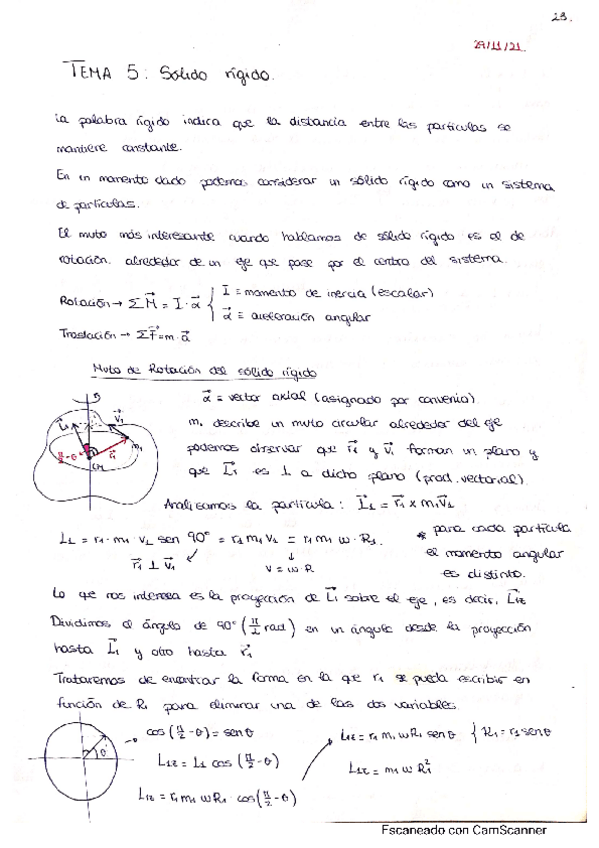 23.
29/11/21.
TEMA 5: Sólido rígido.
La palabra rígido indica que la distancia entre las partículas se
mantiene constante.
En un momento dado podemos considerar un sólido rígido como un sistema
de partículas.
El mvto más interesante cuando hablamos de sólido rígido es el de
rotación. alrededor de un eje que pase por el centro del sistema.
Rotación → ΣM⃗ = I · α⃗ { I = momento de inercia (escalar)
α⃗ = aceleración angular
Traslación → ΣF⃗ = m · a⃗
Mvto de Rotación del sólido rígido
α⃗ = vector axial (asignado por convenio)
m₁ describe un mvto circular alrededor del eje
podemos observar que r⃗₁ y v⃗₁ forman un plano y
que L⃗₁ es ⊥ a dicho plano (prod. vectorial).
L⃗₁ v⃗₁ m₁ r⃗₁ π/2-θ CM
Analizamos la partícula: L⃗₁ = r⃗₁ x m₁v⃗₁
L₁ = r₁ · m₁ · v₁ sen 90° = r₁ m₁ v₁ = r₁ m₁ ω · R₁.
r⃗₁ ⊥ v⃗₁ v = ω · R
* para cada partícula
el momento angular
es distinto.
Lo que nos interesa es la proyección de L⃗₁ sobre el eje, es decir, L⃗₁z
Dividimos el ángulo de 90° (π/2 rad) en un ángulo desde la proyección
hasta L⃗₁ y otro hasta r⃗₁
Trataremos de encontrar la forma en la que r₁ se pueda escribir en
función de R₁ para eliminar una de las dos variables.
θ → cos (π/2 - θ) = sen θ
L₁z = L₁ cos (π/2 - θ)
L₁z = r₁ m₁ ω R₁ · cos (π/2 - θ)
L₁z = r₁ m₁ ω R₁ sen θ { R₁ = r₁ sen θ
L₁z = m₁ ω R₁²
Escaneado con CamScanner